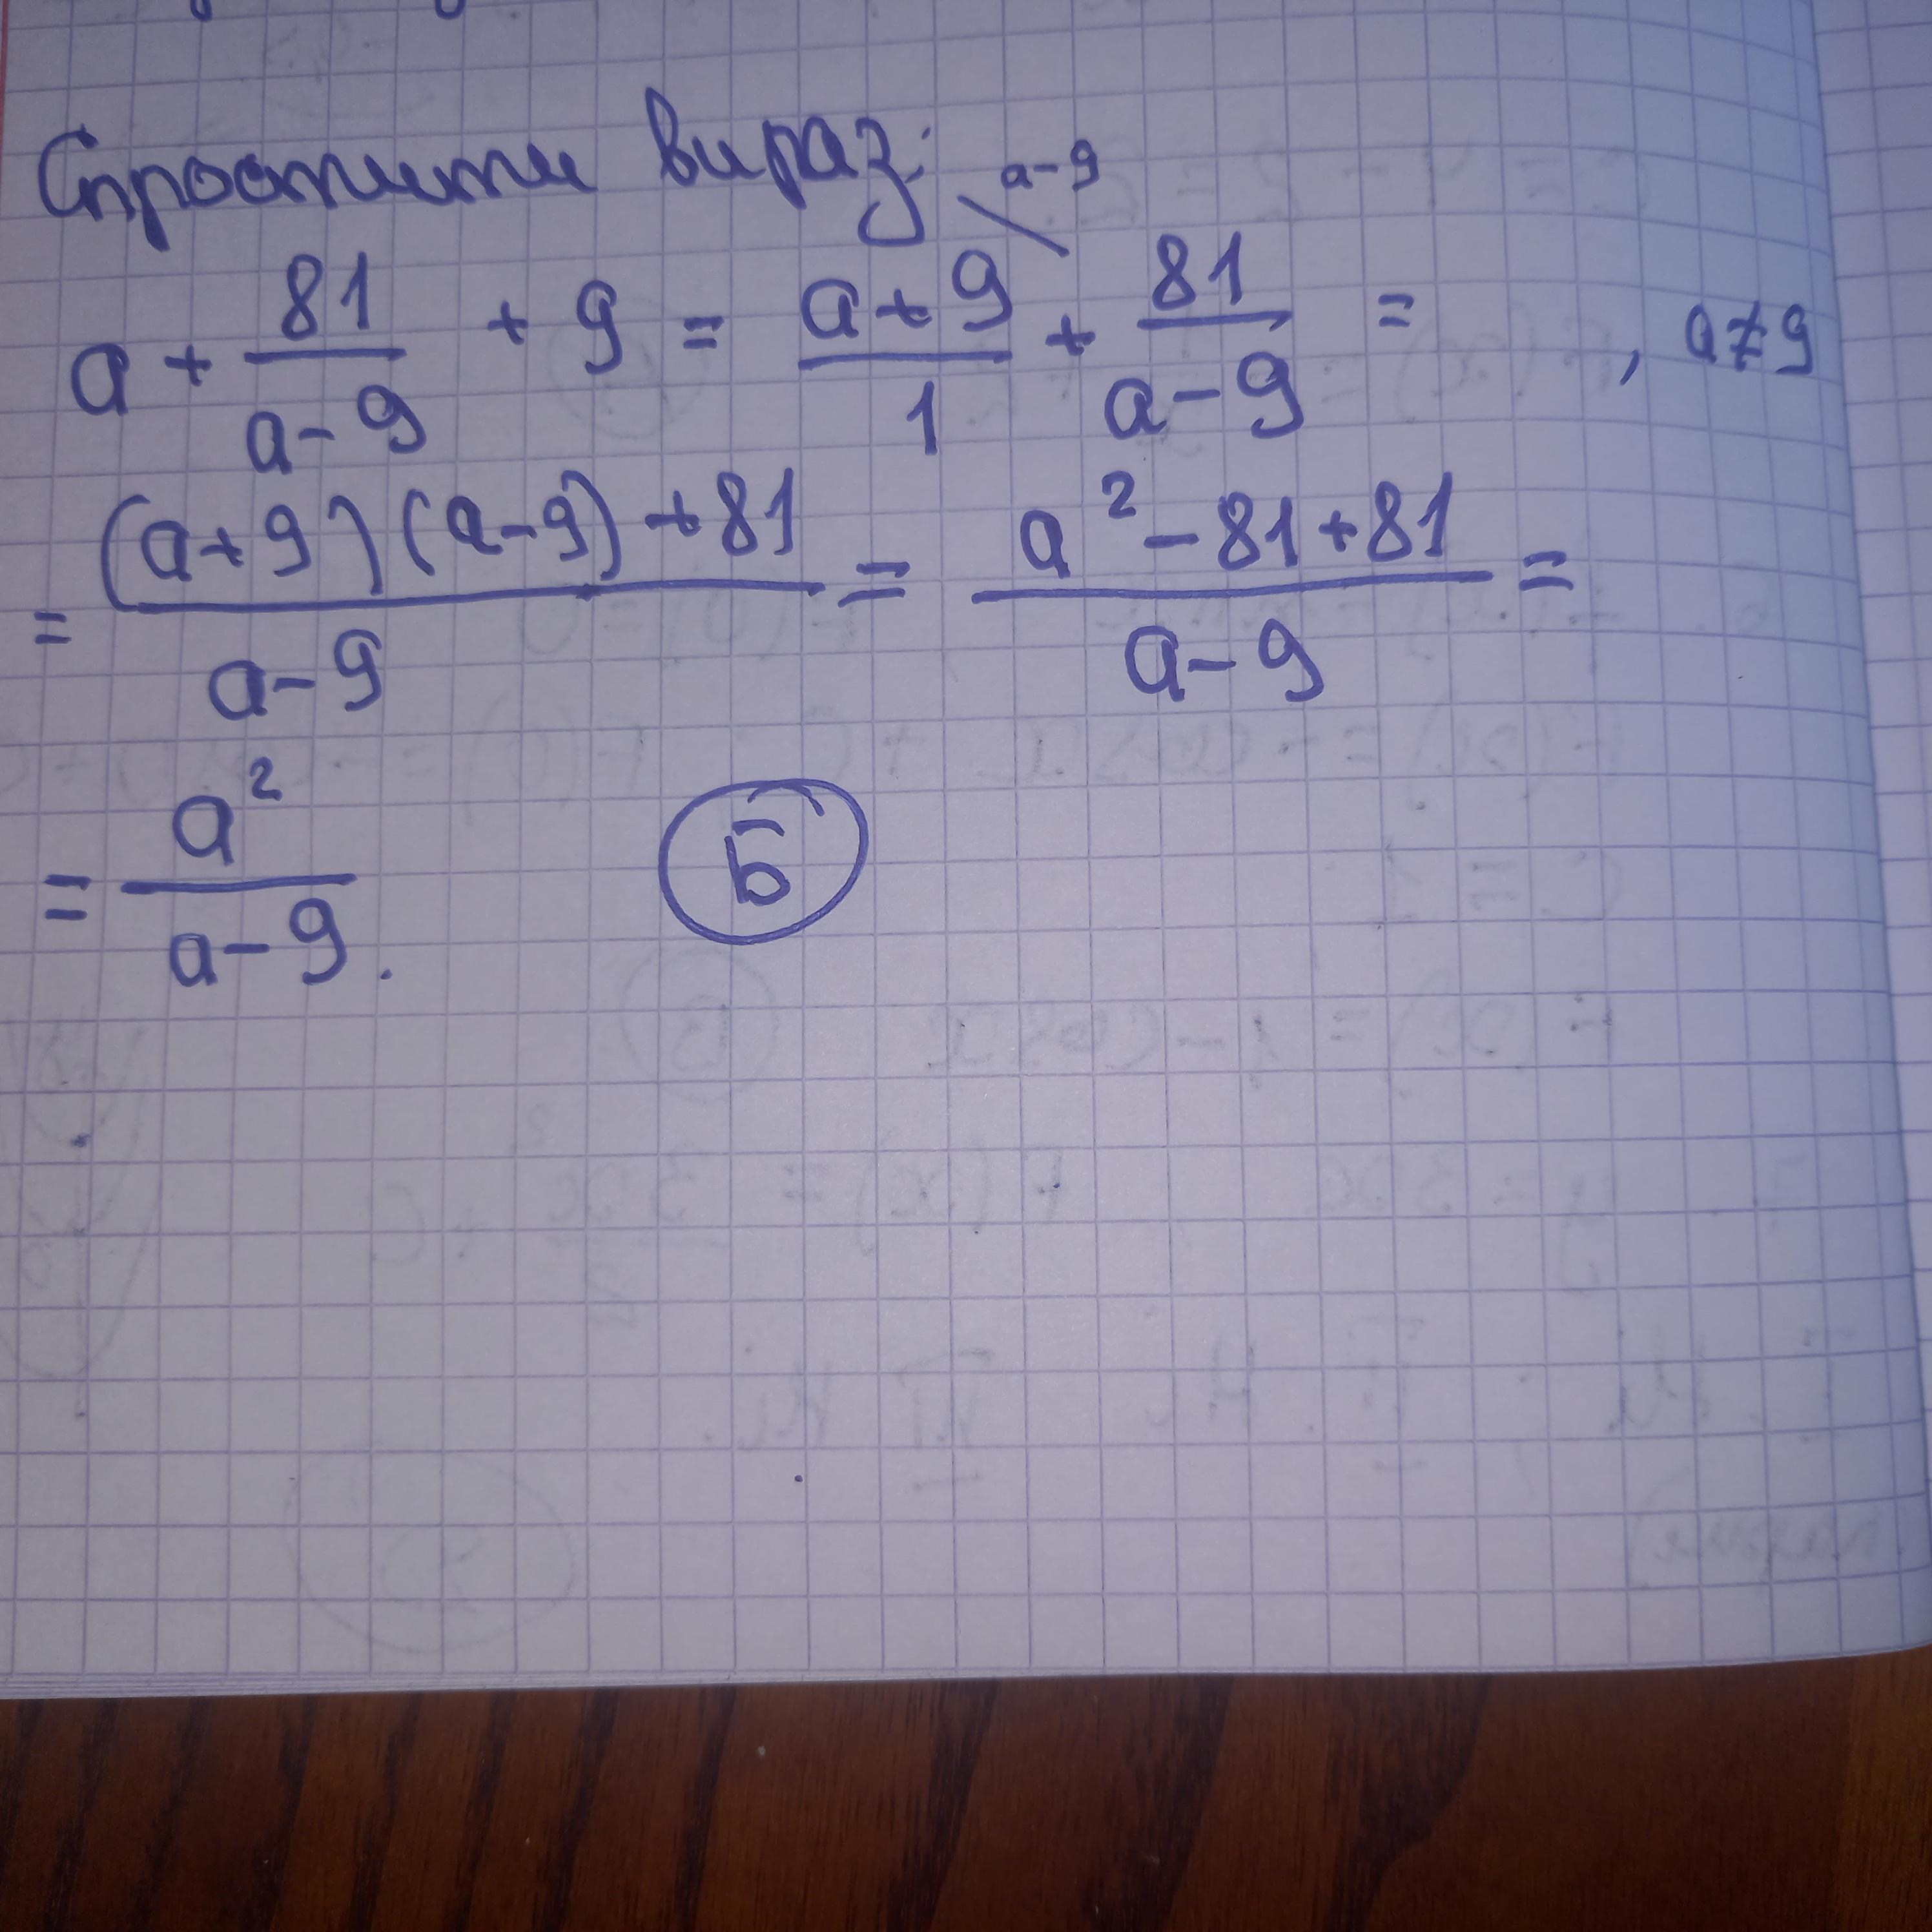 Спростити вираз:
a + 81/(a-9) + 9 = (a+9)/1 \ a-9 + 81/(a-9) = , a≠9
= ((a+9)(a-9)+81)/(a-9) = (a²-81+81)/(a-9) =
= a²/(a-9).
Б